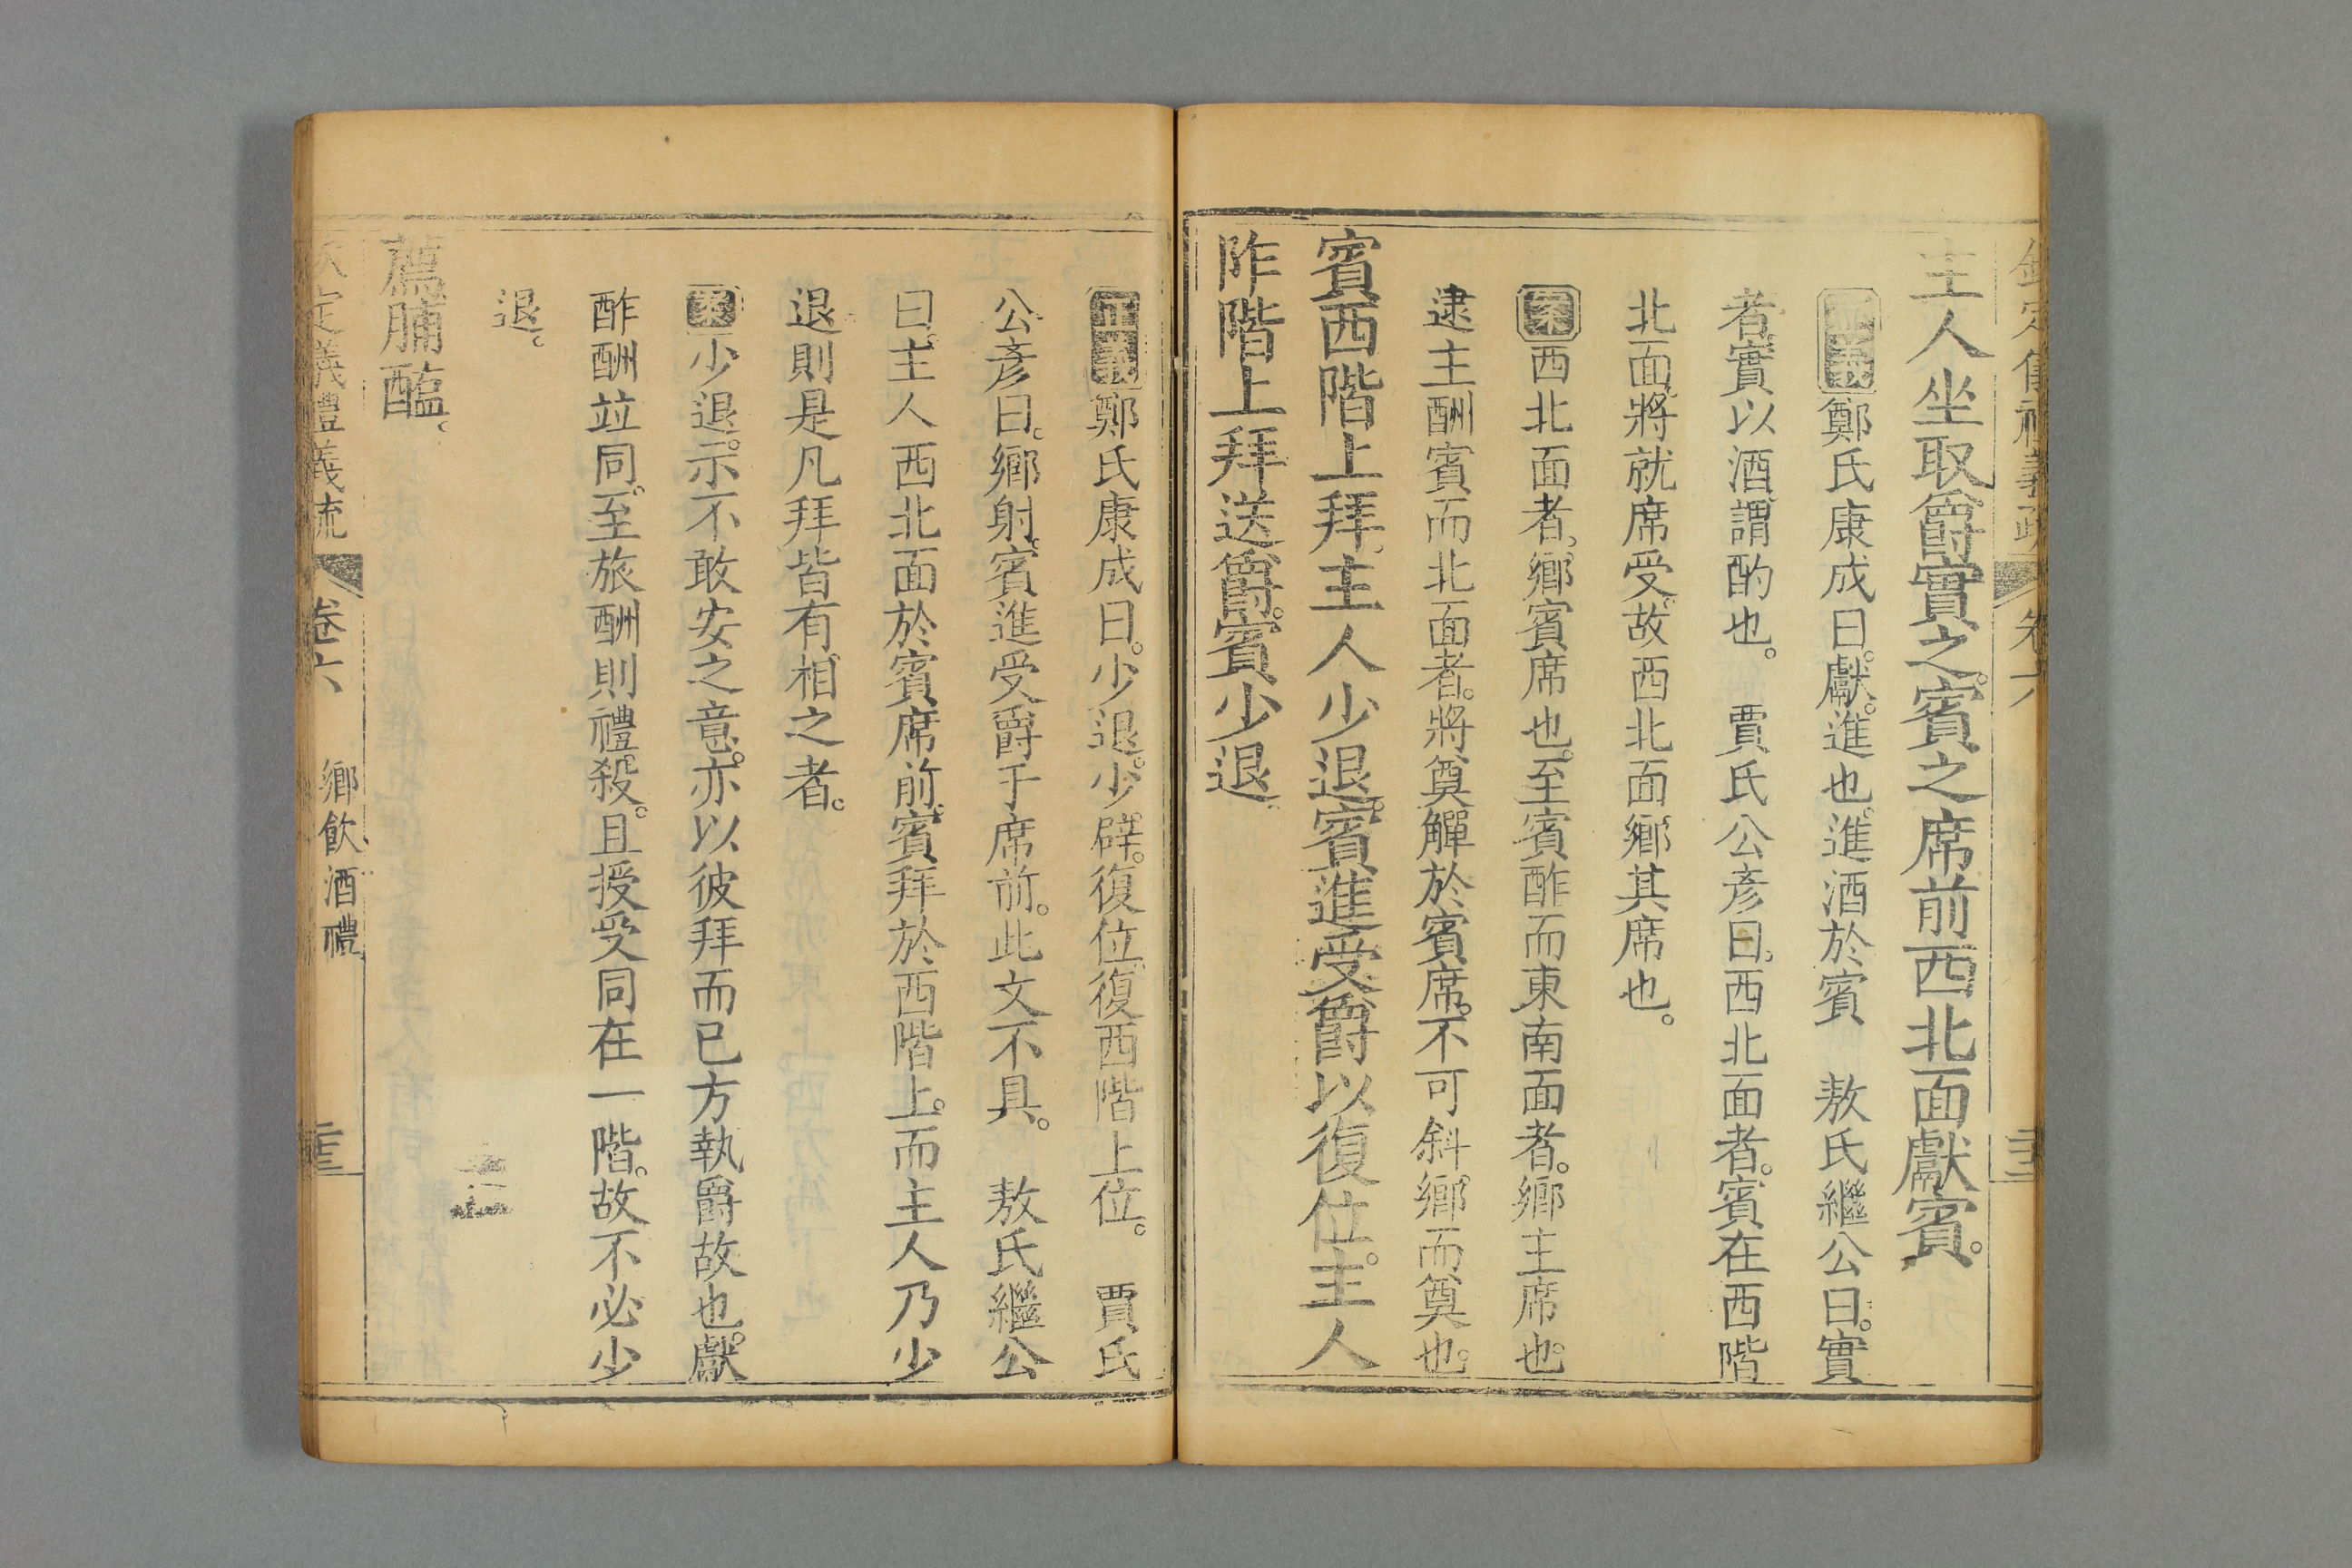 欽定儀禮義疏 卷六
主人坐取爵實之。賓之席前西北面獻賓。
正義鄭氏康成曰。獻。進也。進酒於賓 敖氏繼公曰。實
者。實以酒。謂酌也。 賈氏公彦曰。西北面者。賓在西階
北面。將就席受。故西北面鄉其席也。
案西北面者。鄉賓席也。至賓酢而東南面者。鄉主席也。
逮主酬賓而北面者。將奠觶於賓席。不可斜鄉而奠也。
賓西階上拜。主人少退。賓進受爵以復位。主人
阼階上拜送爵。賓少退
正義鄭氏康成曰。少退。少辟。復位。復西階上位。 賈氏
公彦曰。鄉射。賓進受爵于席前。此文不具。 敖氏繼公
曰。主人西北面於賓席前。賓拜於西階上。而主人乃少
退。則是凡拜皆有相之者。
案少退。示不敢安之意。亦以彼拜而已方執爵故也。獻
酢酬竝同。至旅酬則禮殺。且授受同在一階。故不必少
退。
薦脯醢。
欽定儀禮義疏 卷六 鄉飲酒禮